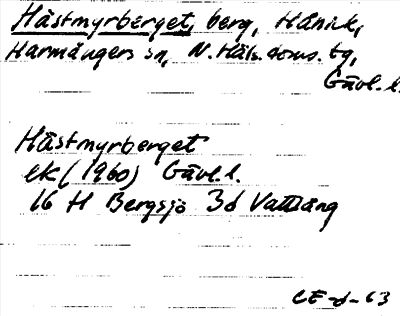 Hästmyrberget, berg, Hånick,
Harmångers sn, N. Häls. doms. tg,
Gävl. l.
Hästmyrberget
ek (1960) Gävl. l.
16 H Bergsjö 3d Vattlång
CE-d-63